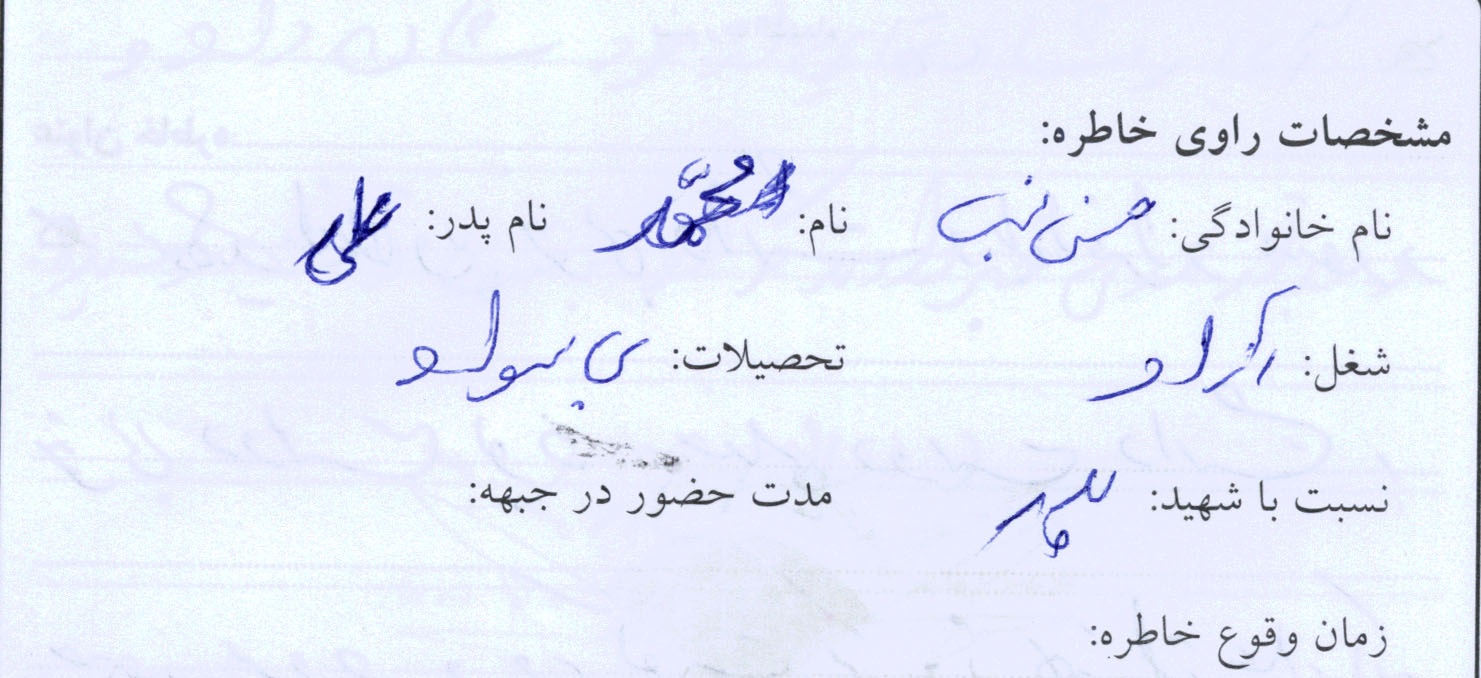 مشخصات راوی خاطره:
نام خانوادگی: حسنی نسب نام: محمد نام پدر: علی
شغل: آزاد تحصیلات: بی سواد
نسبت با شهید: پدر مدت حضور در جبهه:
زمان وقوع خاطره: